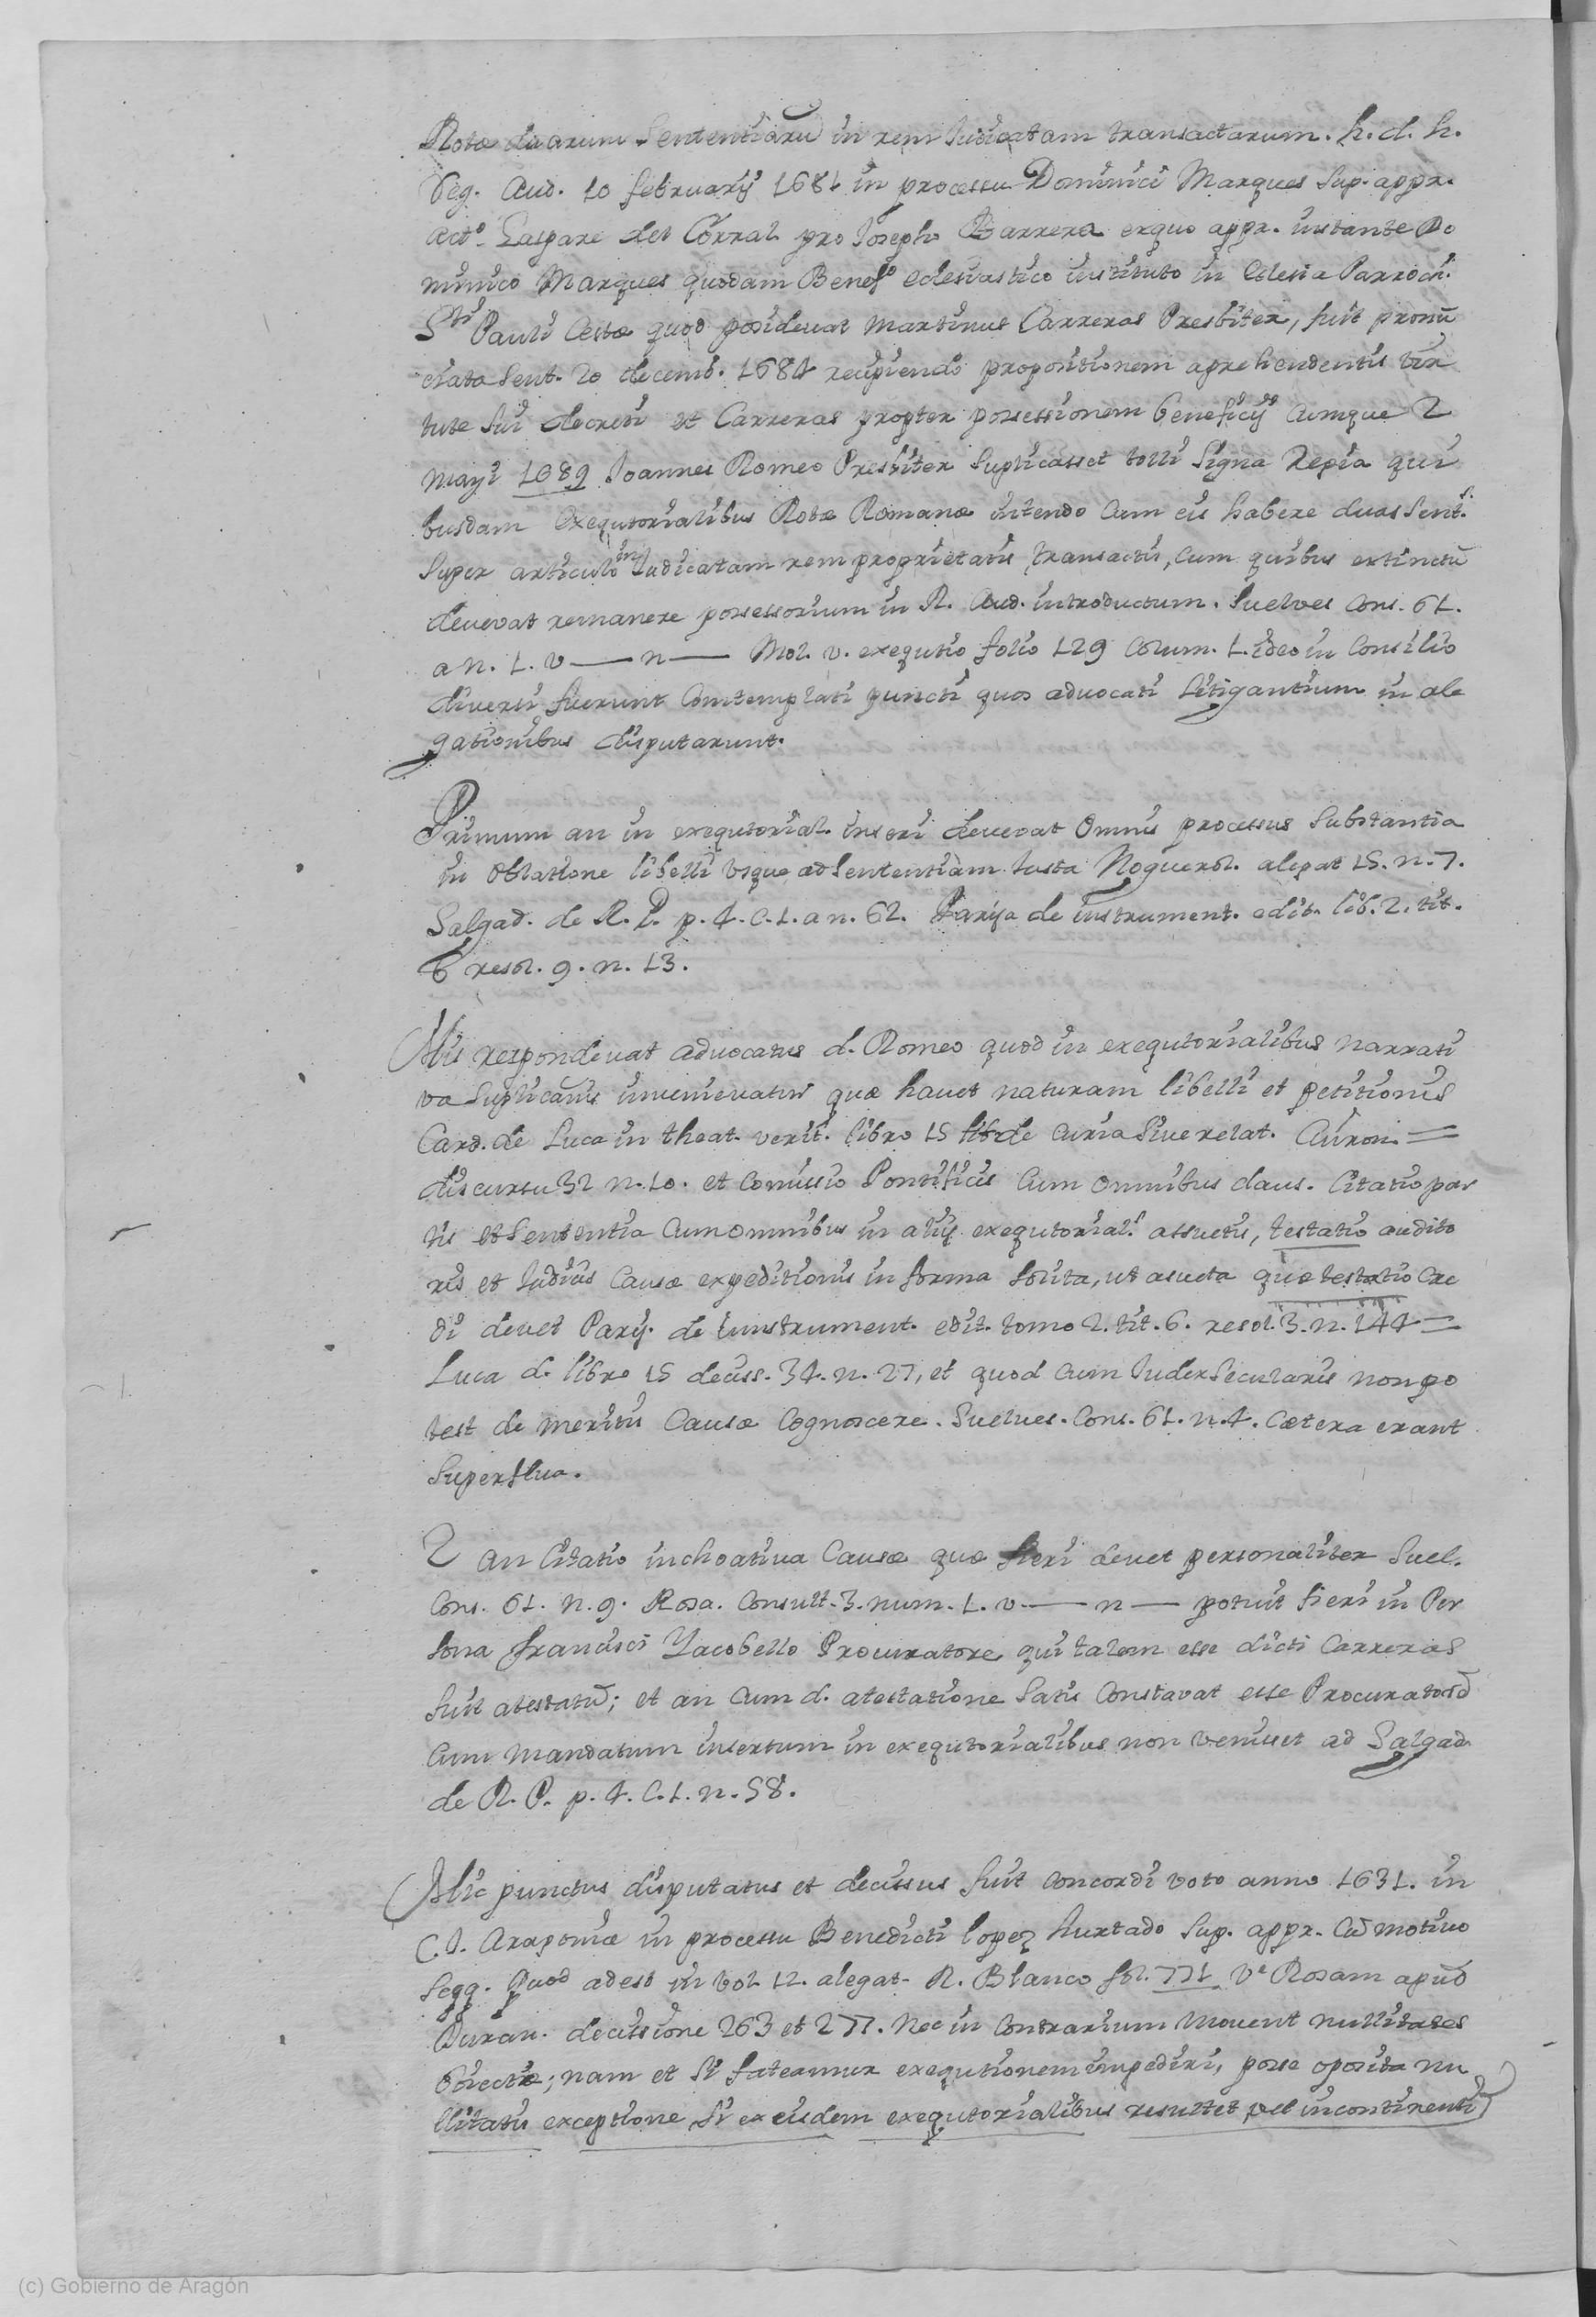 Rotæ duarum Sententiarũ in rem Iudicatam transactarum. h. d. h.
Reg. Aud. 10 februarÿ 1681 in processu Dominici Marques Sup. appr.
act.º Gaspare del Corral pro Iosepho Barrera exquo appr. instante Do
minico Marques quodam Benefº eclesiastico instituto in eclesia Parroch.
Sti Pauli Cestæ quod posidevat Martinus Carreras Presbiter, fuit pronũ
ciata Sent. 20 decemb. 1684 recipiendo propositionem aprehendentis vir
tute sui decreti et Carreras propter possessionem beneficÿ Cumque 2
mayi 1689 Ioannes Romeo Presbiter Suplicasset tolli Signa Regia qui
busdam exequtorialibus Rotæ Romanæ intendo Cum eis habere duas Sent.s
Super articulo in Iudicatam rem proprietatis transactis, cum quibus extinctũ
devevat remanere possessorium in R. Aud. introductum. Suelves Cons. 61.
a n. 1. v — n — Mol. v. exequtio folio 129 Colum. 1. ideo in Consilio
diversi fuerunt Comtemplati puncti quos advocati Litigantium in ale
gationibus disputarunt.
Primum an in exequtorial. inseri devevat Omnis processus Substantia
in Oblatione libelli usque ad Sententiam Iusta Noguerol. alegat 15. n. 7.
Salgad. de R. P. p. 4. C. 1. a n. 62. Parÿa de instrument. edit. lib. 2. tit.
6 resol. 9. n. 13.
His respondevat advocatus d. Romeo quod in exequtorialibus narrati
va Suplicatiis invenievatur quæ havet naturam libelli et petitionis
Card. de Luca in theat. verit. libro 15 de Curia sive relat. Curon. =
discursu 32 n. 10. et Comissio Pontificis Cum omnibus claus. Citatio par
tis et Sententia Cum omnibus in alÿs exequtorial.s assuetis, testatio audito
ris et Iudicis Causæ expeditionis in forma solita, ut asueta quæ testatio cre
di devet Parÿ. de instrument. edit. tomo 2. tit. 6. resol. 3. n. 144 =
Luca d. libro 15 deciss. 34. n. 27, et quod Cum Iudex Secularis non po
test de meritis Causæ Cognoscere. Suelves. Cons. 61. n. 4. Cætera erant
Superflua.
2 an Citatio inchoativa Causæ quæ fieri devet personaliter Suel.
Cons. 61. n. 9. Rosa. Consult. 3. num. 1. v. — n — potuit fieri in Per
sona francisci Yacobello Procuratore qui talem esse dicti Carreras
fuit atestatũ; et an Cum d. atestatione Satis Constavat esse Procuratorẽ
Cum Mandatum insertum in exequtorialibus non venisset ad Salgad.
de R. P. p. 4. C. 1. n. 58.
Hic punctus disputatus et decissus fuit Concordi voto anno 1631. in
C. I. Aragoniæ in processu Benedicti lopez hurtado Sup. appr. Cũ motivo
Seqq. Quod adest in vol. 12. alegat. R. Blanco fol. 771 Ve Rosam apud
Duran. decissione 263 et 277. Nec in Contrarium Movent nullitates
obiectæ; nam et si fateamur exequtionem impediri, posse oposita nu
llitatis exceptione si ex eisdem exequtorialibus resultet vel incontinenti
(c) Gobierno de Aragón